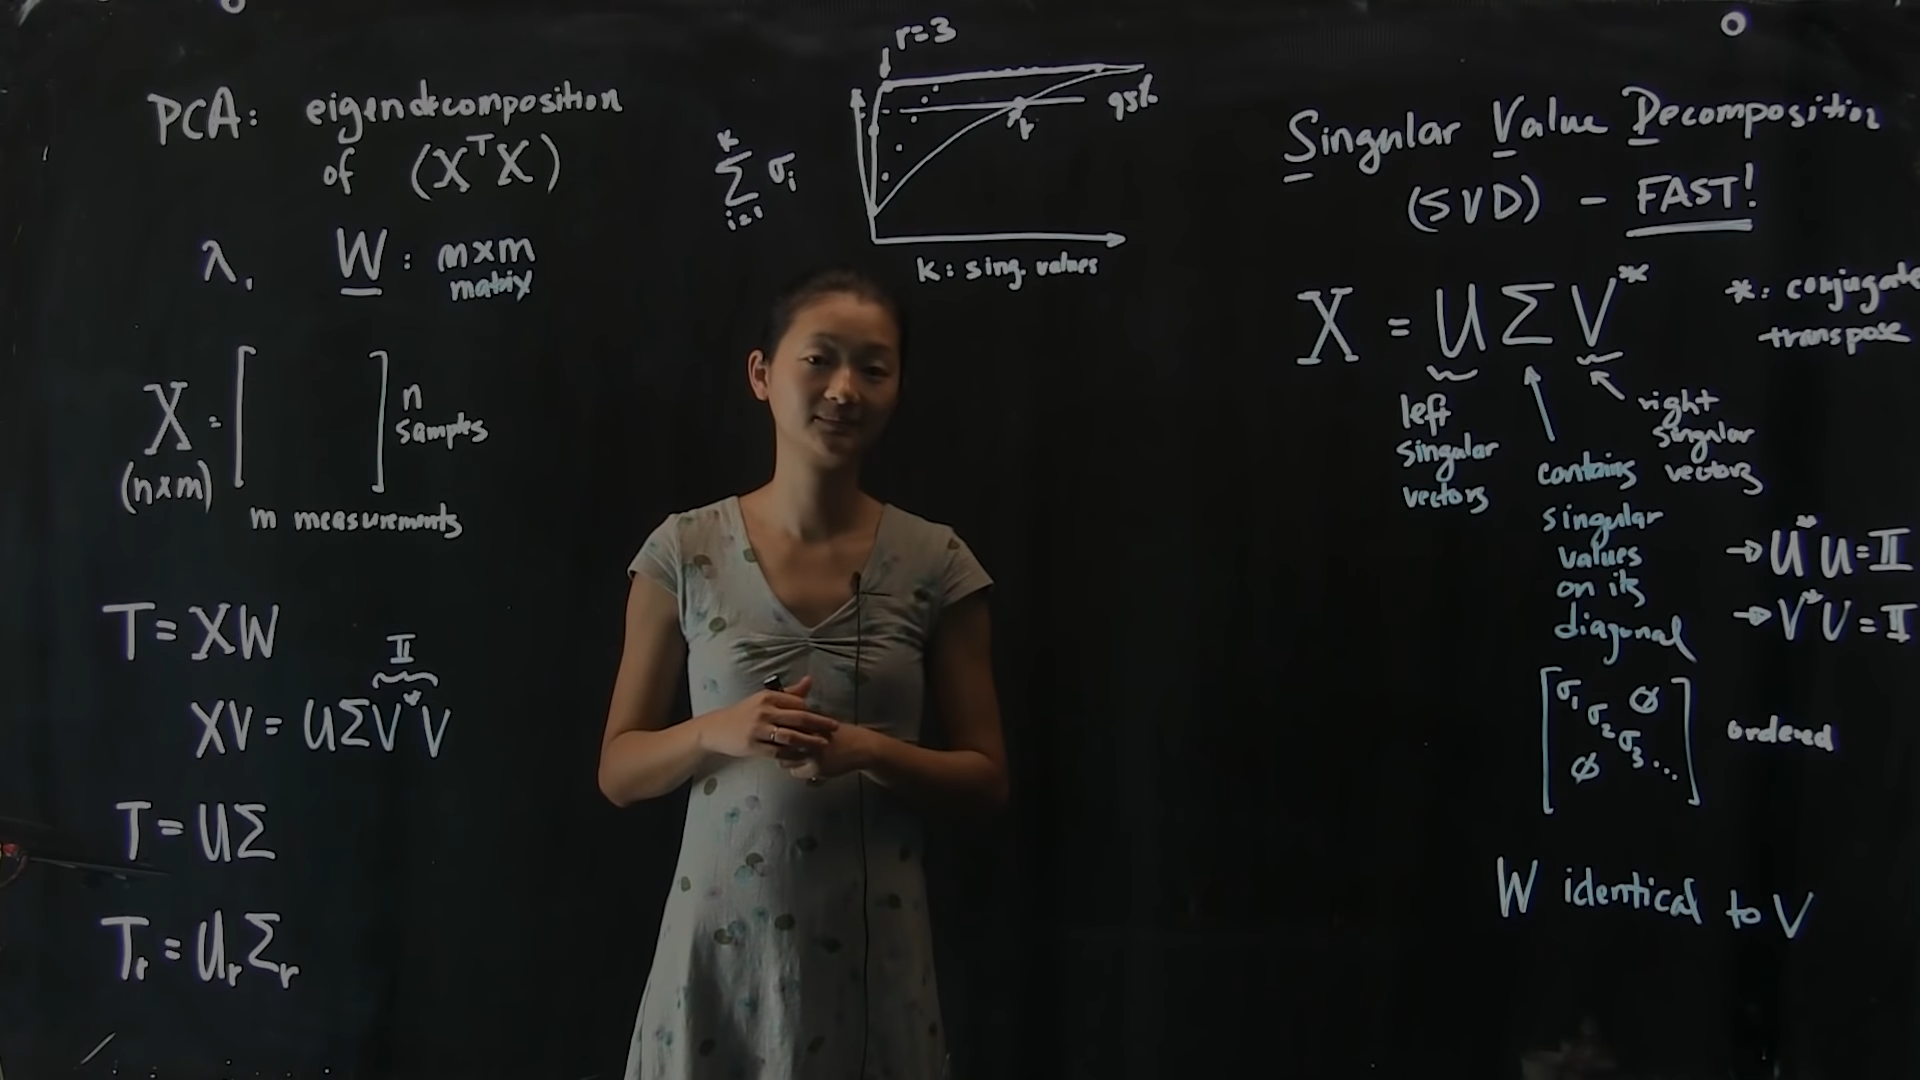 PCA: eigendecomposition
of (XᵀX)
λ, W : m×m
matrix
X = [ ] n
samples
(n×m)
m measurements
T = XW
II
XV = UΣV*V
T = UΣ
Tᵣ = UᵣΣᵣ
r=3
95%
r
k
Σ σᵢ
i=1
k: sing. values
Singular Value Decomposition
(SVD) - FAST!
X = UΣV*
*: conjugate
transpose
left
singular
vectors
contains
singular
values
on its
diagonal
right
singular
vectors
→ U*U = II
→ V*V = II
σ₁ ∅
σ₂
∅ σ₃ ...
ordered
W identical to V